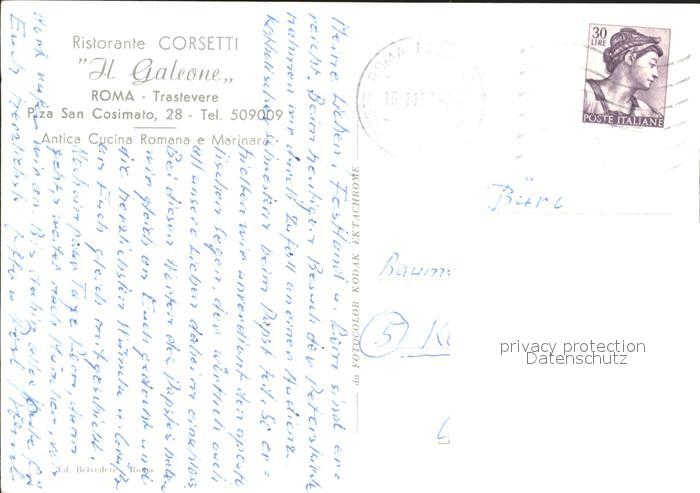 Ristorante CORSETTI
"Il Galeone„
ROMA - Trastevere
P.za San Cosimato, 28 - Tel. 509009
Antica Cucina Romana e Marinara
Meine Lieben, Festland u. Rom sind er-
reicht. Beim heutigen Besuch der Peterskirche
nahmen wir durch Zufall an einer Audienz
katholischer Schwestern beim Papst teil. So er-
hielten wir unverdient den aposto-
lischen Segen, der wörtlich auch
all unsere Lieben daheim einschloss
Bei diesen Worten des Papstes haben
wir gleich an Euch gedacht und
die herzlichsten Wünsche u. Grüße
an Euch gleich mitgeschickt.
Noch ein paar Tage Rom, dann
geht's weiter nach München, wo
Bis dahin alles Gute
Euch herzlichst
da FOTOCOLOR KODAK EKTACHROME
Ed. Belvedere - Roma
ROMA
30
LIRE
POSTE ITALIANE
Büro
Baum
5 K
privacy protection
Datenschutz